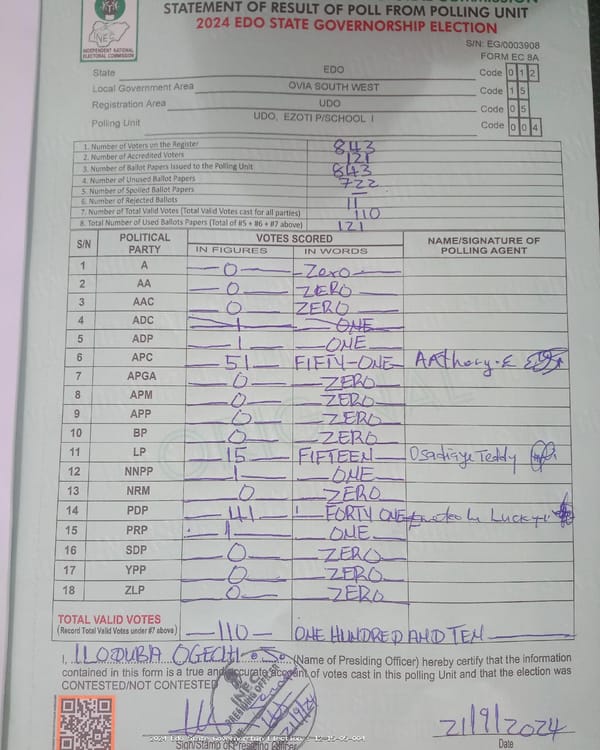 STATEMENT OF RESULT OF POLL FROM POLLING UNIT
2024 EDO STATE GOVERNORSHIP ELECTION
INEC
INDEPENDENT NATIONAL
ELECTORAL COMMISSION
S/N: EG/0003908
FORM EC 8A
State EDO Code 0 1 2
Local Government Area OVIA SOUTH WEST Code 1 5
Registration Area UDO Code 0 5
Polling Unit UDO, EZOTI P/SCHOOL I Code 0 0 4
1. Number of Voters on the Register 843
2. Number of Accredited Voters 121
3. Number of Ballot Papers Issued to the Polling Unit 843
4. Number of Unused Ballot Papers 722
5. Number of Spoiled Ballot Papers —
6. Number of Rejected Ballots 11
7. Number of Total Valid Votes (Total Valid Votes cast for all parties) 110
8. Total Number of Used Ballots Papers (Total of #5 + #6 + #7 above) 121
S/N POLITICAL PARTY VOTES SCORED NAME/SIGNATURE OF POLLING AGENT
IN FIGURES IN WORDS
1 A 0 Zero
2 AA 0 ZERO
3 AAC 0 ZERO
4 ADC 1 ONE
5 ADP 1 ONE
6 APC 51 FIFTY-ONE
7 APGA 0 ZERO
8 APM 0 ZERO
9 APP 0 ZERO
10 BP 0 ZERO
11 LP 15 FIFTEEN Teddy
12 NNPP 1 ONE
13 NRM 0 ZERO
14 PDP 41 FORTY ONE Lucky
15 PRP 1 ONE
16 SDP 0 ZERO
17 YPP 0 ZERO
18 ZLP 0 ZERO
TOTAL VALID VOTES
(Record Total Valid Votes under #7 above) 110 ONE HUNDRED AND TEN
I, ILODUBA OGECHI (Name of Presiding Officer) hereby certify that the information
contained in this form is a true and accurate account of votes cast in this polling Unit and that the election was
CONTESTED/NOT CONTESTED
INEC
PRESIDING OFFICER
21/9/24
21/9/2024
Sign/Stamp of Presiding Officer Date